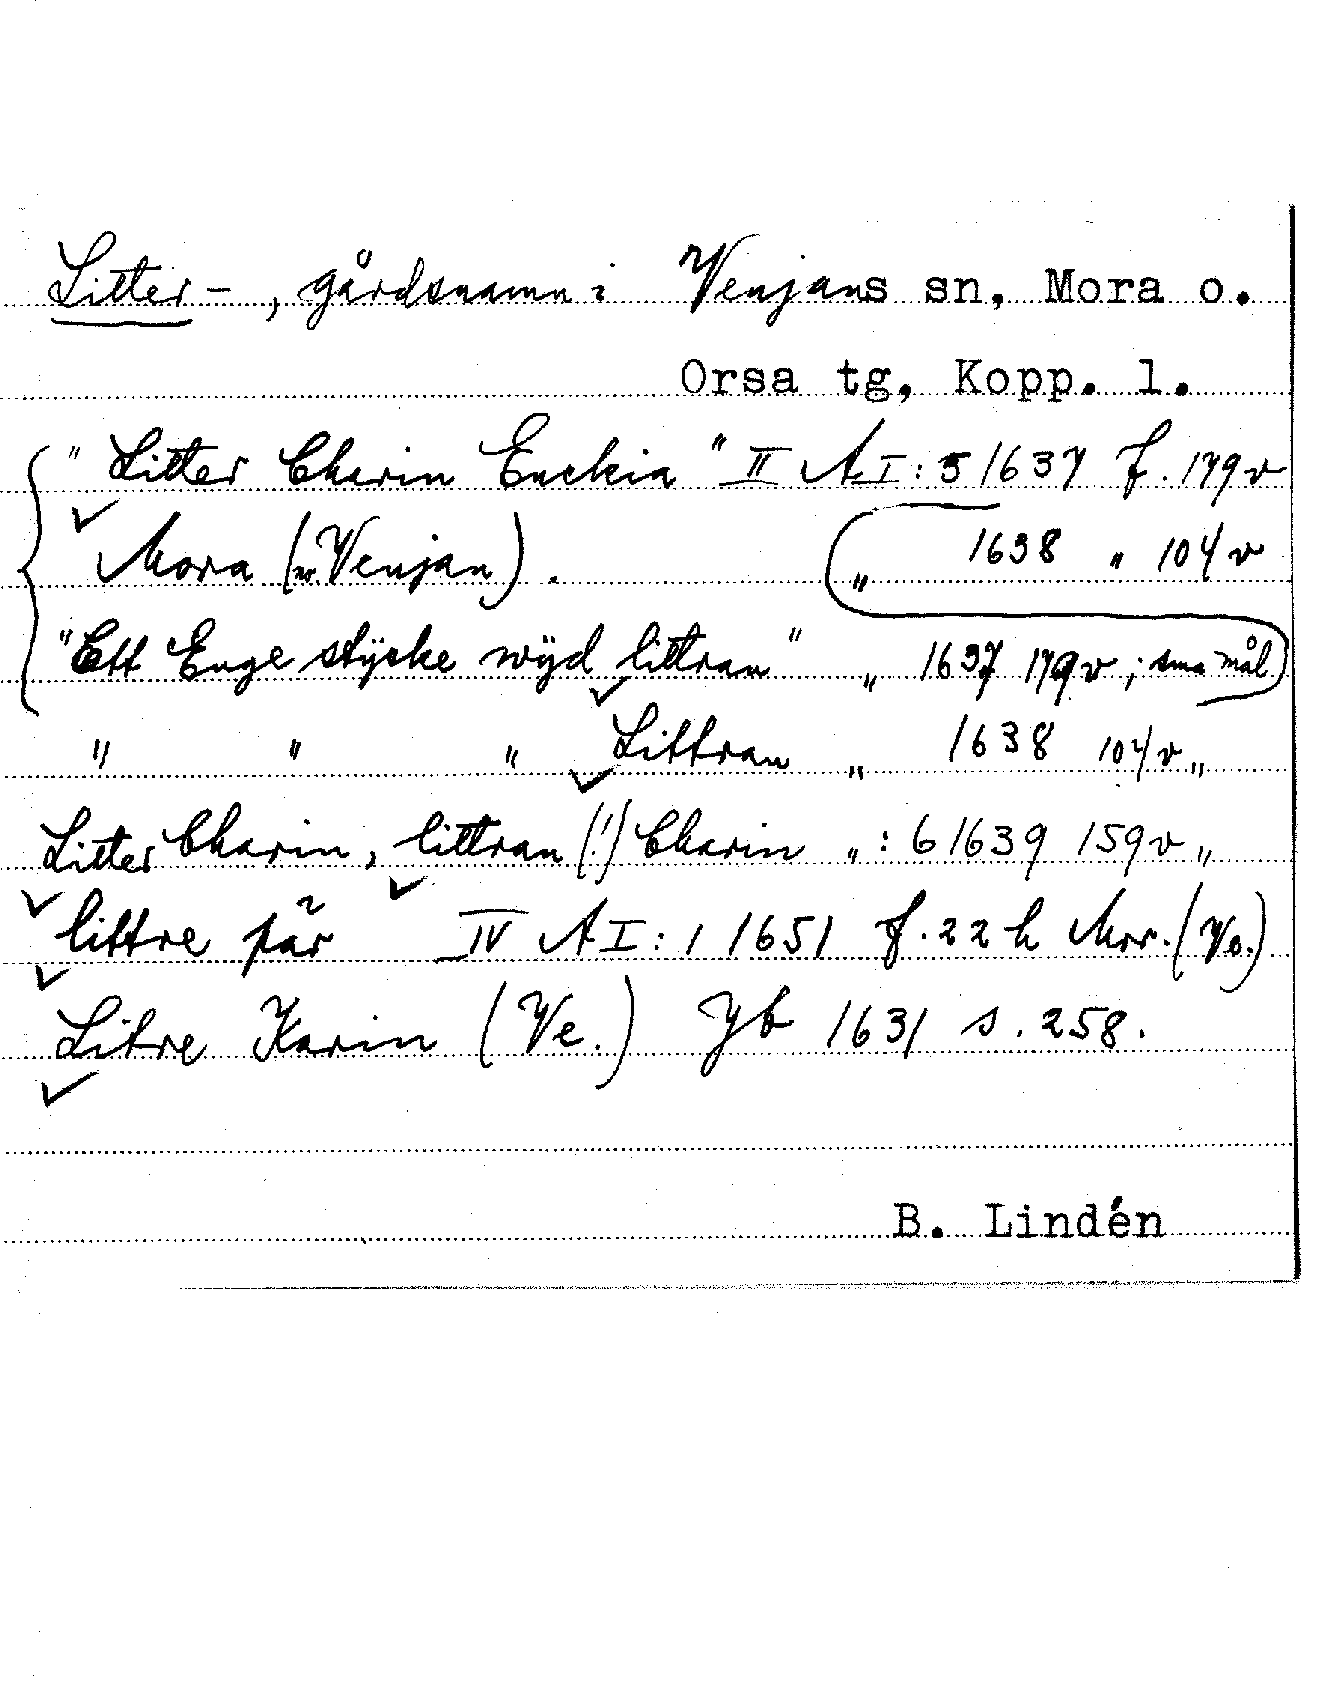 Litter-, gårdsnamn i Venjans sn, Mora o.
Orsa tg, Kopp. l.
"Litter Charin Enckia" II A I: 5 1637 f. 179 v
Mora (Venjan). " 1638 " 104 v
"Ett Enge stÿcke wÿd littran" " 1637 179 v; sma mål
" " " Littran " 1638 104 v "
Litter Charin, littran (!) Charin " : 6 1639 159 v "
littre pär IV A I: 1 1651 f. 22 h Mor. (Ve.)
Litre Karin (Ve.) Jb 1631 s. 258.
B. Lindén